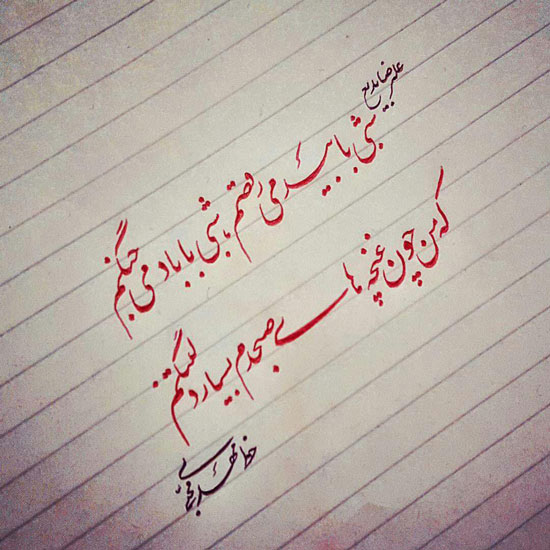 علیرضا بدیع
شبی با بید می رقصم، شبی با باد می جنگم
که من چون غنچه های صبحدم بسیار دلتنگم